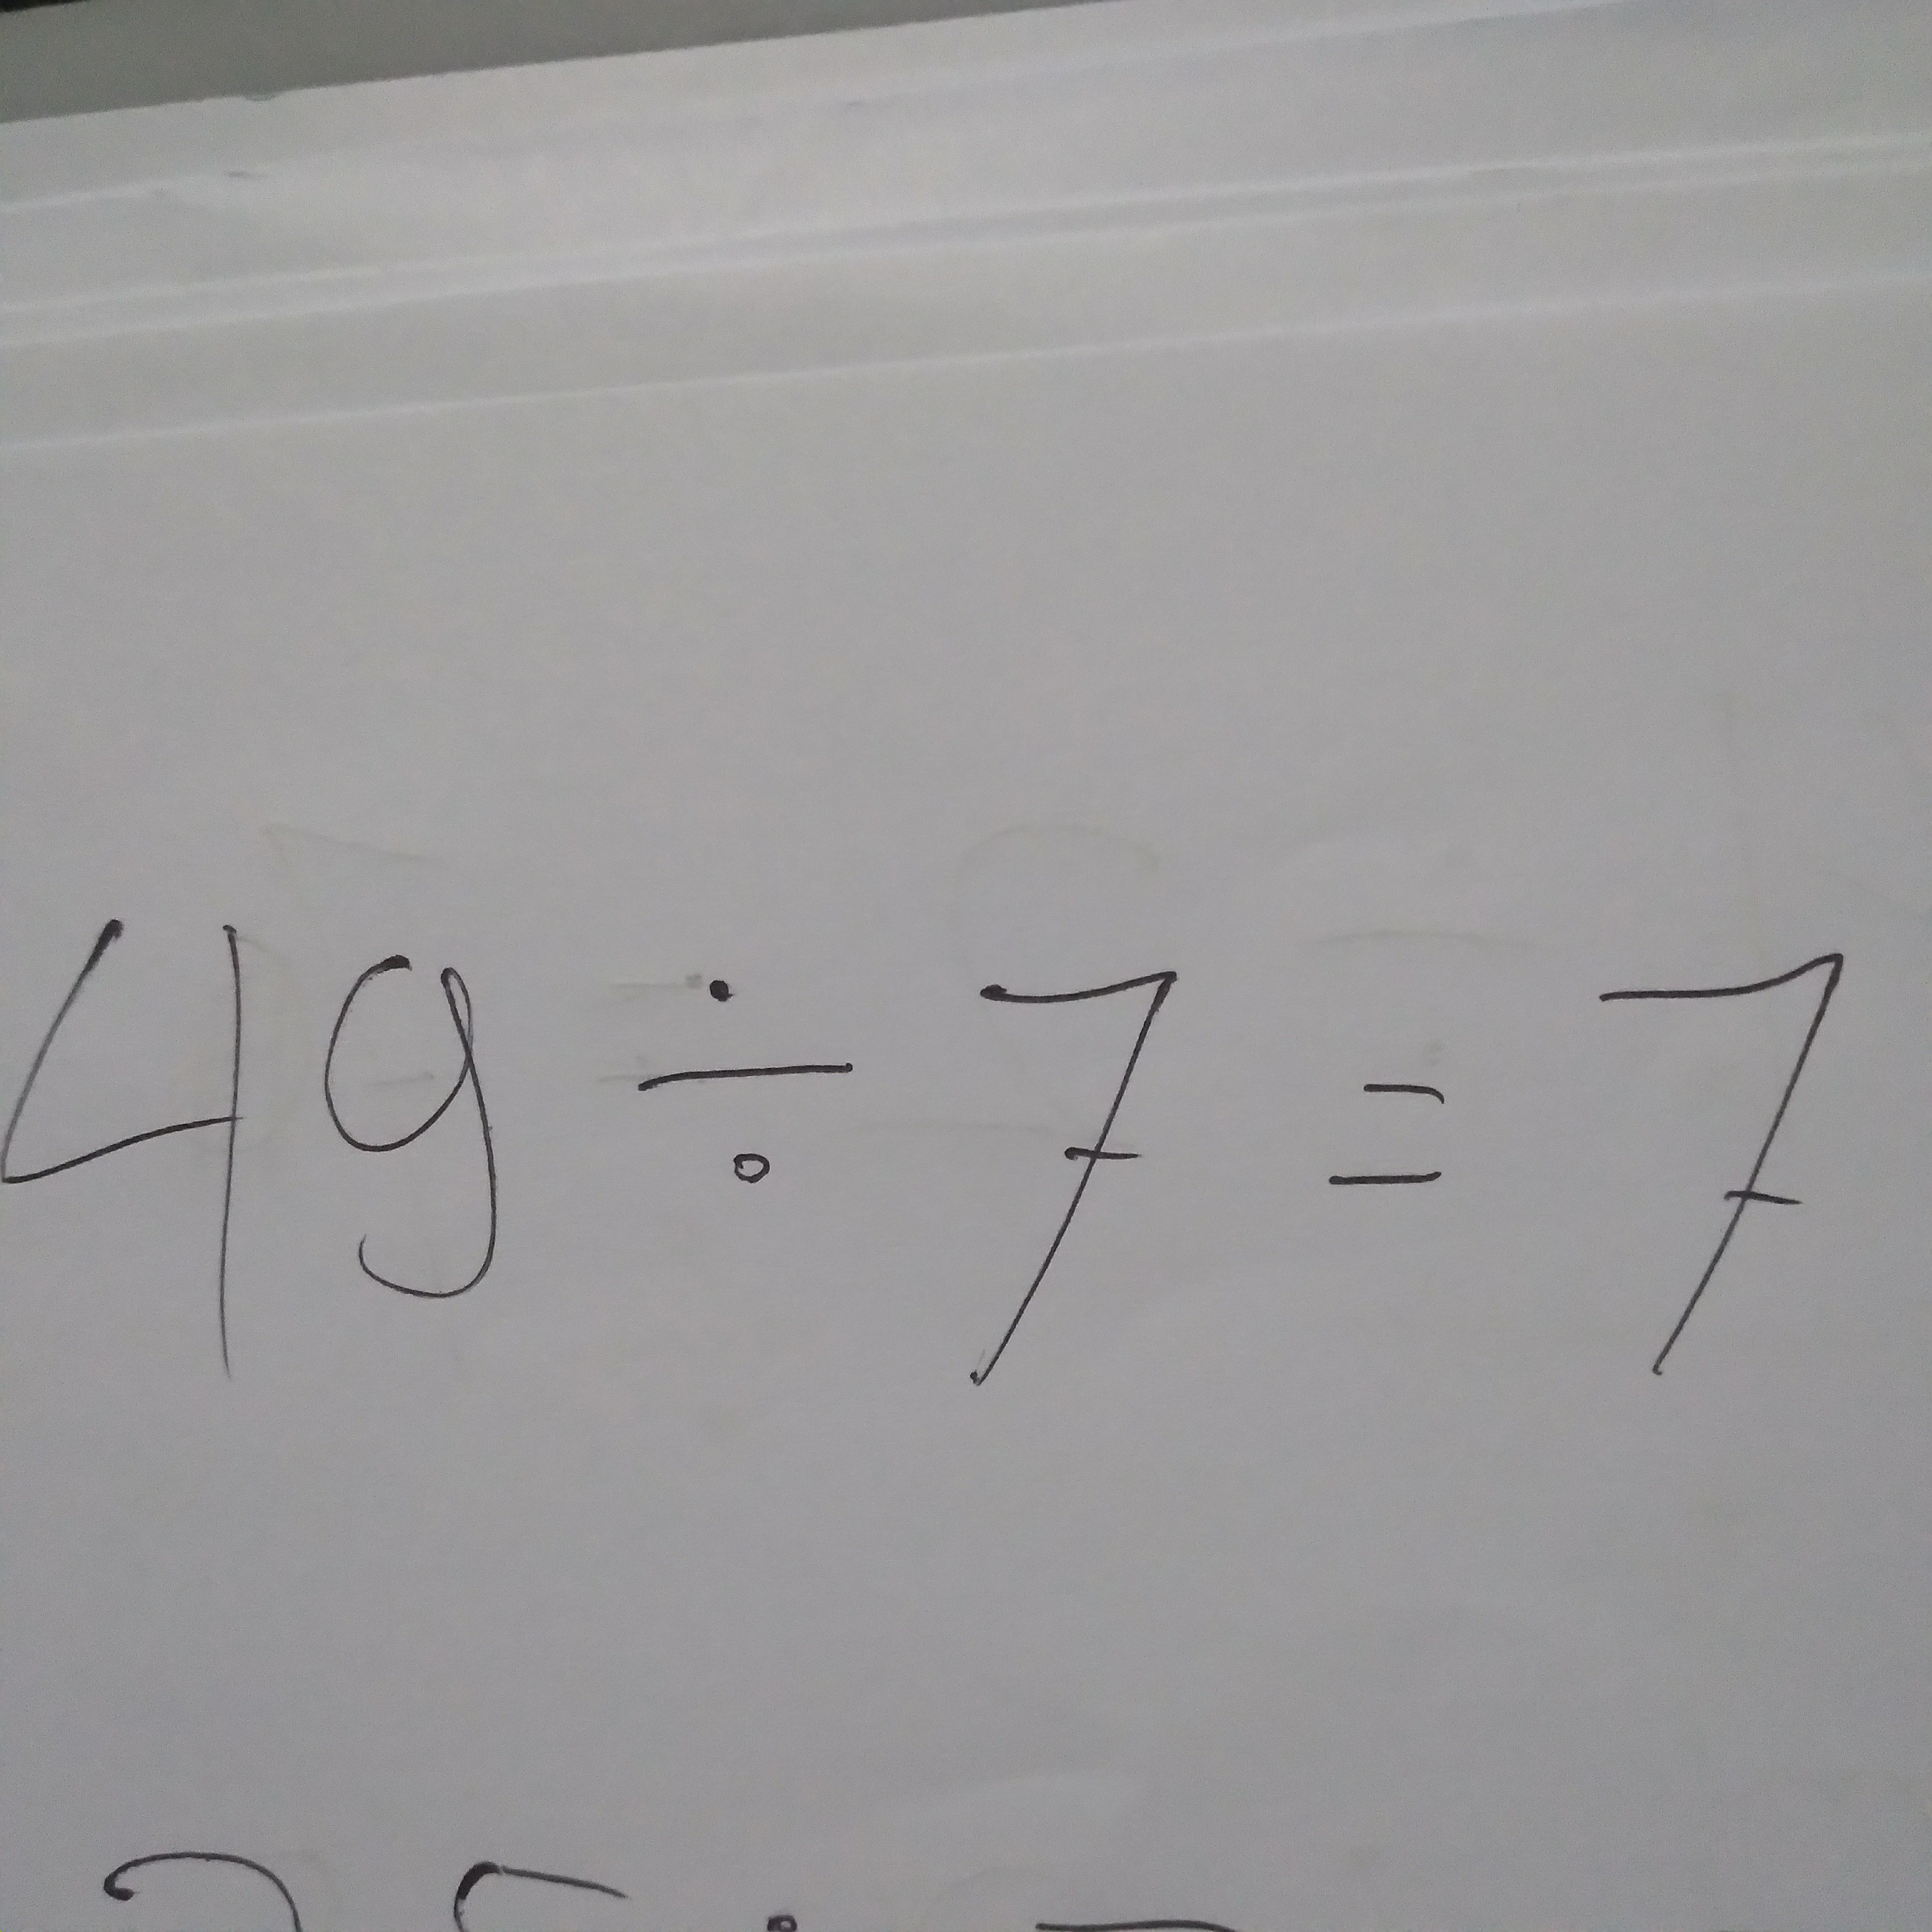 49 ÷ 7 = 7